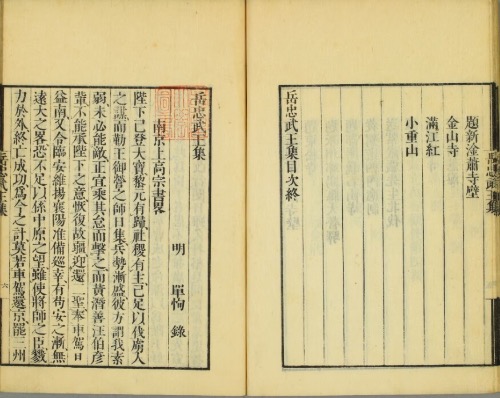 題新淦蕭寺壁
金山寺
滿江紅
小重山
岳忠武王集目次終
岳忠武王集
明 單恂 錄
南京上高宗書畧
陛下已登大寶黎元有歸社稷有主已足以伐虜人
之謀而勤王御營之師日集兵勢漸盛彼方謂我素
弱未必能敵正宜乘其怠而擊之而黃潛善汪伯彥
輩不能承陛下之意恢復故疆迎還二聖奉車駕日
益南又令臨安維揚襄陽准備廵幸有苟安之漸無
遠大之畧恐不足以係中原之望雖使將帥之臣戮
力於外終亡成功爲今之計莫若車駕還京罷三州
岳忠武王集
六